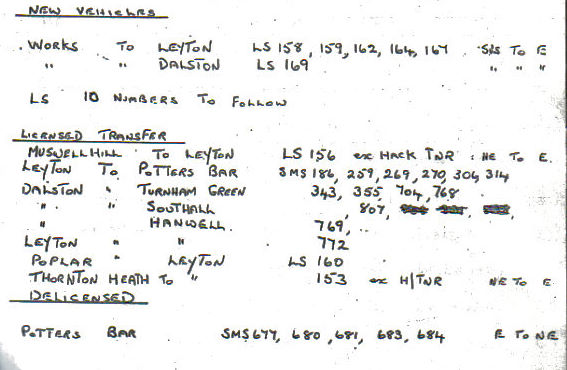 NEW VEHICLES
WORKS TO LEYTON LS 158, 159, 162, 164, 167 S/S TO E
" " DALSTON LS 169 " " "
LS 10 NUMBERS TO FOLLOW
LICENSED TRANSFER
MUSWELL HILL TO LEYTON LS 156 ex HACK TNR : NE TO E.
LEYTON TO POTTERS BAR SMS 186, 259, 269, 270, 304, 314
DALSTON " TURNHAM GREEN 343, 355, 704, 768
" " SOUTHALL , 807,
" " HANWELL. 769,
LEYTON " " 772
POPLAR " LEYTON LS 160
THORNTON HEATH TO " 153 ex H/TNR NE TO E
DELICENSED
POTTERS BAR SMS 677, 680, 681, 683, 684 E TO NE